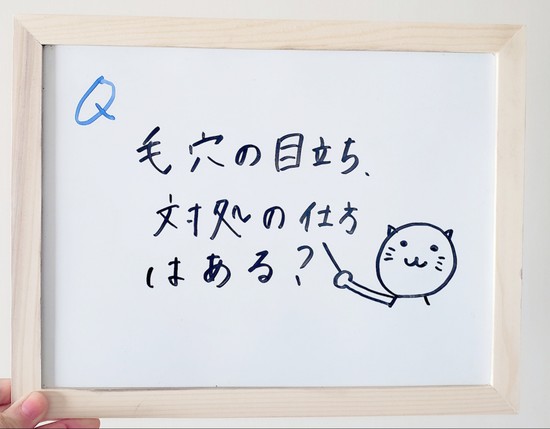 Q
毛穴の目立ち、
対処の仕方
はある?